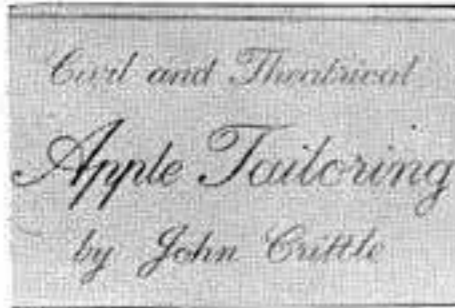 Civil and Theatrical
Apple Tailoring
by John Crittle